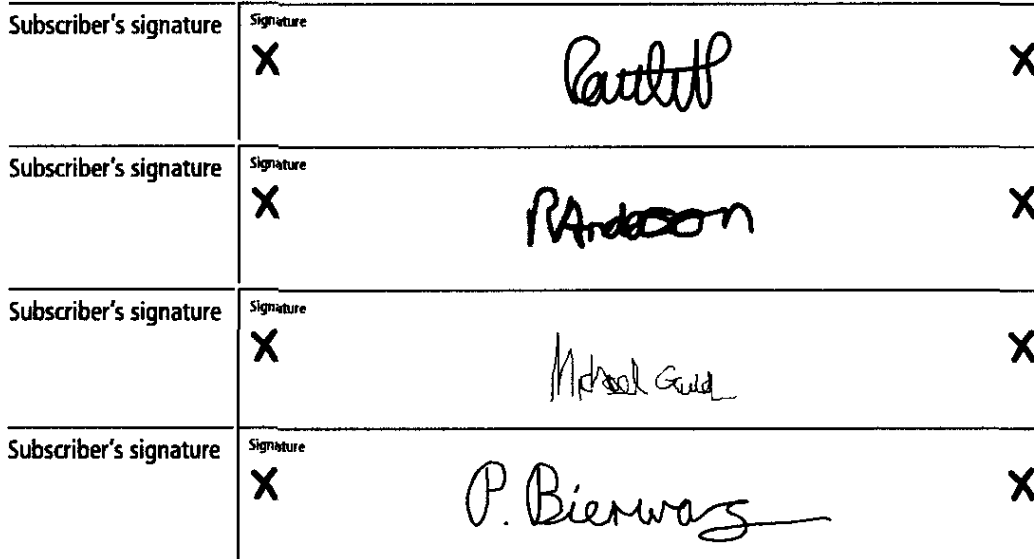 Subscriber's signature
Signature
X X
Subscriber's signature
Signature
X RAnderson X
Subscriber's signature
Signature
X Michael X
Subscriber's signature
Signature
X P. Bierwag X